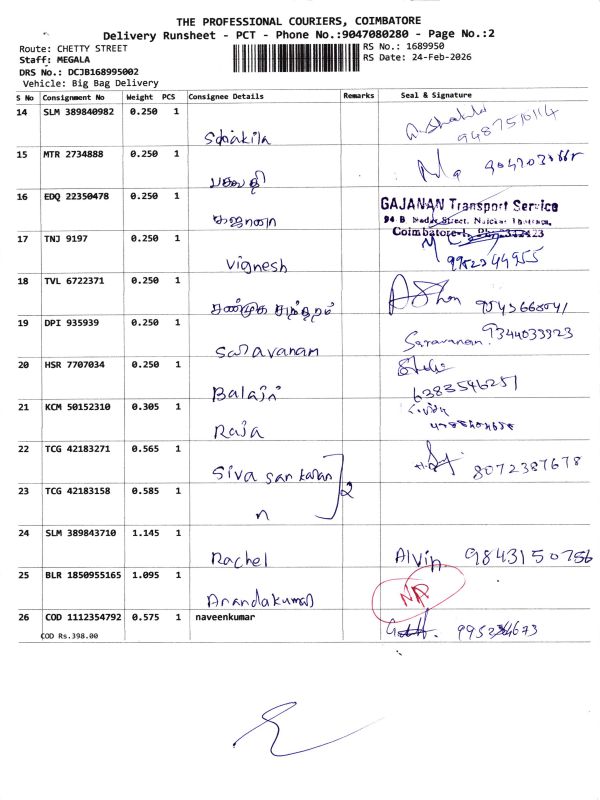 THE PROFESSIONAL COURIERS, COIMBATORE
Delivery Runsheet - PCT - Phone No.:9047080280 - Page No.:2
Route: CHETTY STREET
RS No.: 1689950
Staff: MEGALA
RS Date: 24-Feb-2026
DRS No.: DCJB168995002
Vehicle: Big Bag Delivery
S No Consignment No Weight PCS Consignee Details Remarks Seal & Signature
14 SLM 389840982 0.250 1
Shakila
15 MTR 2734888 0.250 1
பகவதி
16 EDQ 22350478 0.250 1
கஜானன
GAJANAN Transport Service
Coimbatore-1
17 TNJ 9197 0.250 1
Vignesh 9952344955
18 TVL 6722371 0.250 1
சண்முக சுந்தரம்
19 DPI 935939 0.250 1
Saravanam Saravanan. 9344033923
20 HSR 7707034 0.250 1
Balaji 6383546251
21 KCM 50152310 0.305 1
Raja
22 TCG 42183271 0.565 1
Siva sankaran 2 8072387678
23 TCG 42183158 0.585 1
n
24 SLM 389843710 1.145 1
Rachel Alvin 9843150756
25 BLR 1850955165 1.095 1
Anandakumar NA
26 COD 1112354792 0.575 1 naveenkumar
COD Rs.398.00